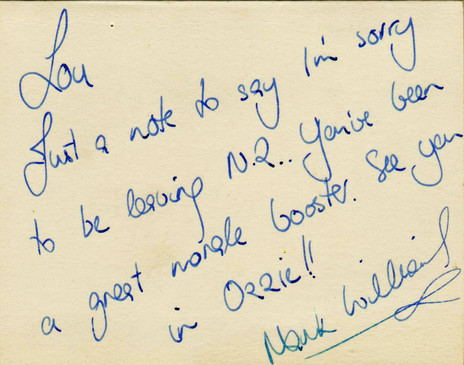 Lou
Just a note to say I'm sorry
to be leaving N.Z.. You've been
a great morale booster. See you
in Ozzie!!
Mark Williams